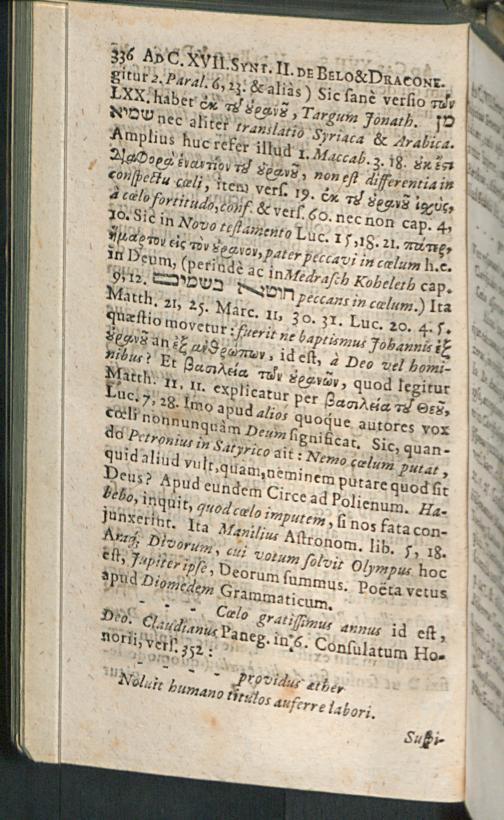 336 AD C. XVII. SYNT. II. DE BELO&DRACONE.
gitur 2. Paral. 6, 23. & aliàs ) Sic sanè versio τῶν
LXX. habet ἐκ τοῦ οὐρανοῦ, Targum Jonath. מן
שמיא nec aliter translatio Syriaca & Arabica.
Amplius huc refer illud 1. Maccab. 3. 18. οὐκ ἔστι
διαφορὰ ἐναντίον τοῦ οὐρανοῦ, non est differentia in
conspectu cœli, item vers. 19. ἐκ τοῦ οὐρανοῦ ἰσχύς,
à cœlo fortitudo, conf. & vers. 60. nec non cap. 4,
10. Sic in Novo testamento Luc. 15, 18. 21. πάτερ,
ἥμαρτον εἰς τὸν οὐρανον, pater peccavi in cœlum h. e.
in Deum, (perinde ac in Medrasch Koheleth cap.
9. 12. חוטא בשמים peccans in cœlum.) Ita
Matth. 21, 25. Marc. 11, 30. 31. Luc. 20. 4. 5.
quæstio movetur: fuerit ne baptismus Johannis ἐξ
οὐρανοῦ an ἐξ ανθρώπων, id est, à Deo vel homi-
nibus? Et βασιλεία τῶν οὐρανῶν, quod legitur
Matth. 11. 11. explicatur per βασιλεία τοῦ Θεοῦ,
Luc. 7, 28. Imo apud alios quoque autores vox
cœli nonnunquàm Deum significat. Sic, quan-
do Petronius in Satyrico ait: Nemo cœlum putat,
quid aliud vult, quam, neminem putare quod sit
Deus? Apud eundem Circe ad Polienum. Ha-
bebo, inquit, quod cœlo imputem, si nos fata con-
junxerint. Ita Manilius Astronom. lib. 5, 18.
Atq; Divorum, cui votum solvit Olympus hoc
est, Jupiter ipse, Deorum summus. Poëta vetus
apud Diomedem Grammaticum.
- - - Cœlo gratissimus annus id est,
Deo. Claudianus Paneg. in 6. Consulatum Ho-
norii, vers. 352:
- - - - providus æther
Noluit humano titulos auferre labori.
Suspi-